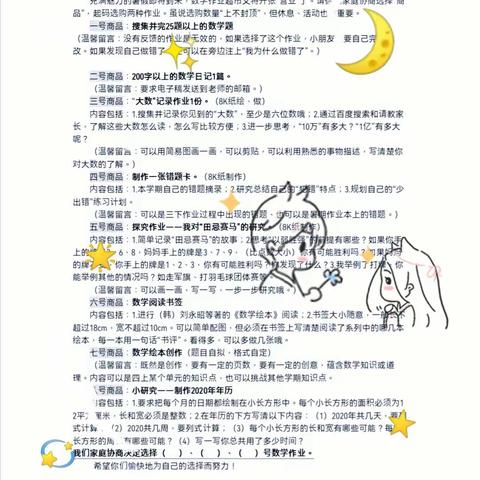 充满魅力的暑假即将到来，数学作业超市又将开张"营业"了。请
品"，起码选购两种作业。虽说选购数量"上不封顶"，但休息、活动也 重要。
一号商品：搜集并完25题以上的数学题
（温馨留言：没有反馈的作业是无效的，如果选择了这个作业，小朋友 要自己完
改。如果发现自己做错了 可以在旁边注上"我为什么做错了"。
二号商品：200字以上的数学日记1篇。
（温馨留言：要求电子稿发送到老师的邮箱。）
三号商品："大数"记录作业1份。（8K纸绘、做）
内容包括：1.搜集并记录你见到的"大数"，至少是六位数哦；2.通过百度搜索和请教家
长，了解这些大数怎么读，怎么写比较方便；3.进一步思考，"10万"有多大？"1亿"有多大
呢？
（温馨留言：可以用简易图画一画，可以剪贴，可以利用熟悉的事物描述，写清楚你
对大数的了解。）
四号商品：制作一张错题卡。（8K纸制作）
内容包括：1.本学期自己的错题摘录；2.研究总结自己的"犯错"特点；3.规划自己的"少
出错"练习计划。
（温馨留言：可以是三下作业过程中出现的错题，也可以是暑期作业本上的错题。）
五号商品：探究作业——我对"田忌赛马"的研究。（8K纸制作）
内容包括：1.简单记录"田忌赛马"的故事；2.思考"以弱胜强"的前提有哪些？如果你手
上的牌 6、8，妈妈手上的牌是3、7、9，（比点数大小）你有可能胜利吗？如果妈妈
的牌 你手上的牌是1、2、3，你有可能胜利吗？你发现了什么？3.我举例了打牌，你
能举例其他的情况吗？如走军旗、打羽毛球团体赛等
（温馨留言：可以画一画，写一写，一步一步研究哦。）
六号商品：数学阅读书签
内容包括：1.进行（韩）刘永昭等著的《数学绘本》阅读；2.书签大小随意，一般长不
超过18cm，宽不超过10cm。可以简单配图，但必须在书签上写清楚阅读了系列中的哪几本
绘本，每一本用一句话"书评"。看得多，可以多做几张哦。
七号商品：数学绘本创作（题目自拟，格式自定）
（温馨留言：既然是创作，要有一定的页数，要有一定的创意，蕴含数学知识或道
理。内容可以是四上某个单元的知识点，也可以挑战其他学期知识点。
八号商品：小研究——制作2020年年历
内容包括：1.要求把每个月的日期都绘制在小长方形中。每个小长方形的面积必须为1
2平方厘米，长和宽必须是整数；2.在年历的下方写清以下内容：（1）2020年共几天，要
式计算 （2）2020共几周，要列式计算；（3）每个小长方形的长和宽有哪些可能？每
长方形的周 有哪些可能？（4）写一写你总共用了多少时间？
我们家庭协商决定选择（ ）、（ ）、（ ）号数学作业。
希望你们愉快地为自己的选择而努力！